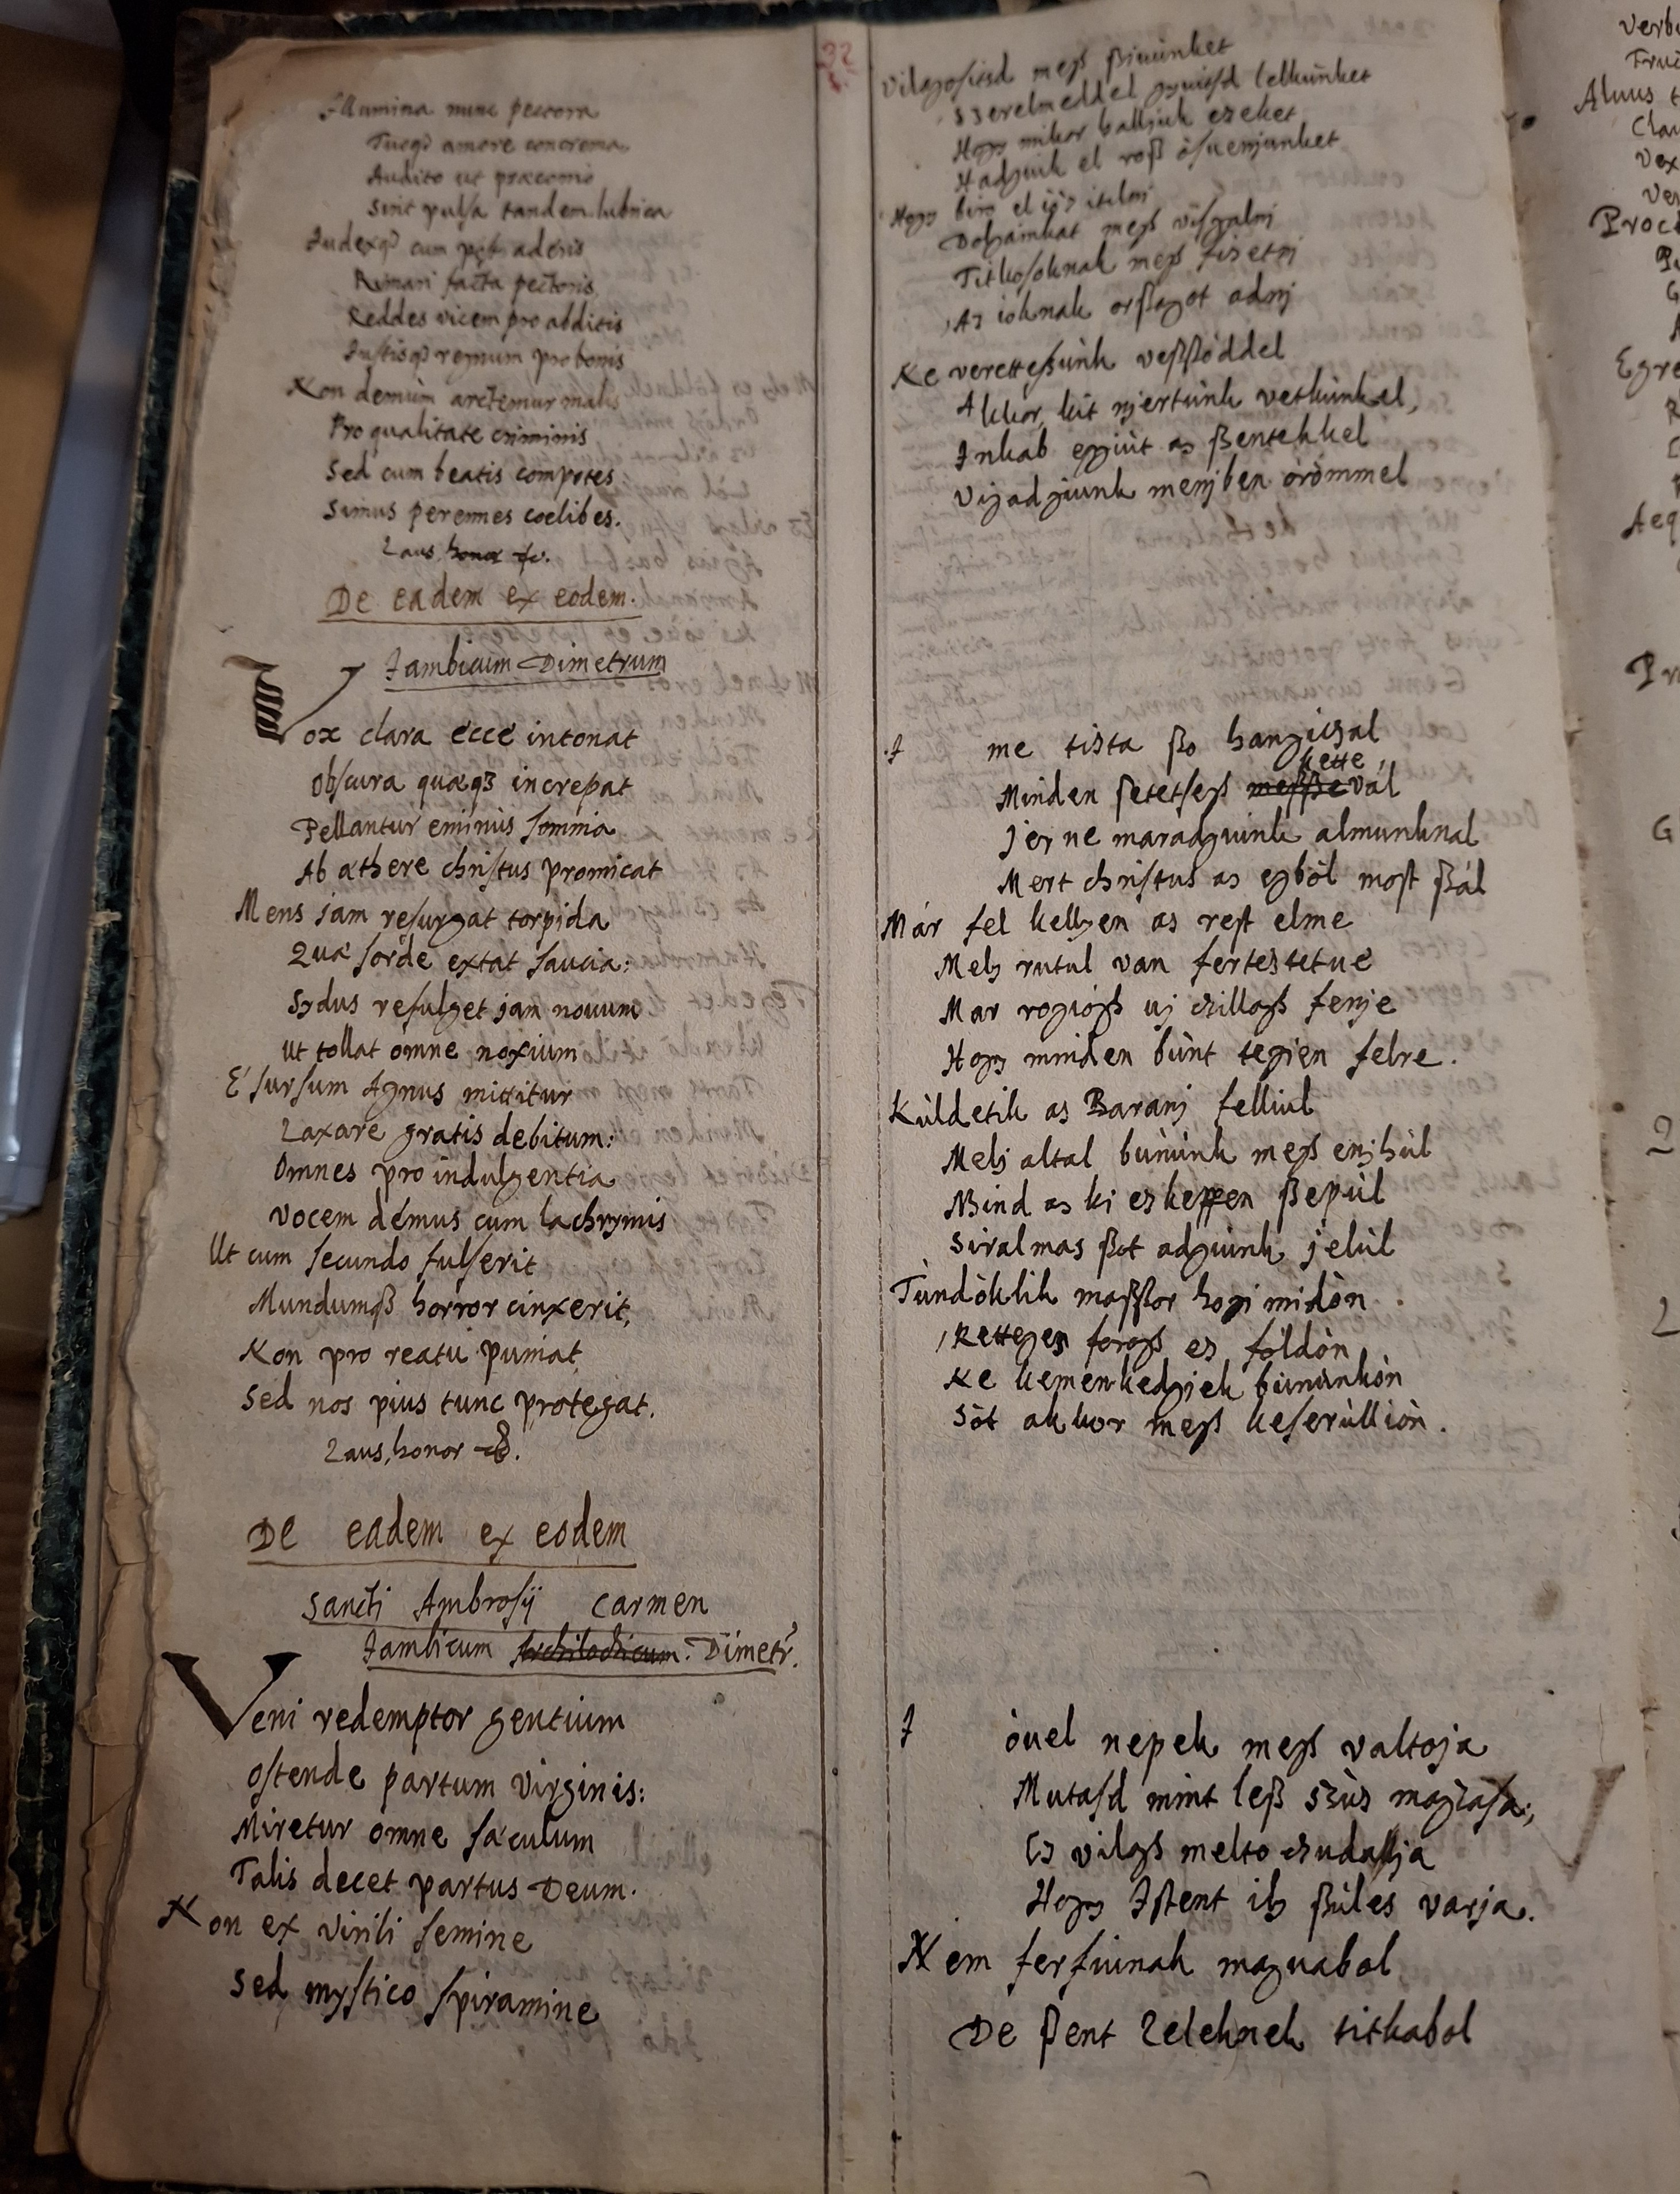 Illumina nunc pectora
Tuoq3 amore concrema,
Audito ut præconio
Sint pulsa tandem lubrica
Judexq3 cum post aderis
Rimari facta pectoris
Reddes vicem pro abditis
Justisq3 regnum pro bonis
Non demùm arctemur malis
Pro qualitate criminis
Sed cum beatis compotes
Simus perennes coelibes.
Laus honor &c.
De eadem ex eodem.
Jambicum Dimetrum
Vox clara ecce intonat
Obscura quæq3 increpat
Pellantur eminùs somnia
Ab æthere christus promicat
Mens jam resurgat torpida
Quæ sorde extat saucia:
Sydus refulget jam novum
Ut tollat omne noxium
E' sursum Agnus mittitur
Laxare gratis debitum:
Omnes pro indulgentia
Vocem demus cum lachrymis
Ut cum secundo fulserit
Mundumq3 horror cinxerit,
Non pro reatu puniat
Sed nos pius tunc protegat.
Laus, honor &c.
De eadem ex eodem
Sancti Ambrosij Carmen
Jambicum Archilochicum. Dimetr.
Veni redemptor gentium
Ostende partum Virginis:
Miretur omne sæculum
Talis decet partus Deum.
Non ex virili semine
Sed mystico spiramine
32
Vilagositsd megh ßivùnket
Szerelmeddel gyuitsd lelkùnket
Hogy mikor hallyuk ezeket
Hadgyuk el roß ösvenyunket
Hogy biro el iöz itilni
Dolgainkat megh visgalni
Titkosoknak megh fizetni
Az ioknak orßagot adnj
Ne verettessùnk veßßöddel
Akkor, kit njertùnk vetkùnkel,
Inkab egiùt az ßentekkel
Vigadgiunk menjben òrömmel
I me tißta ßo hangitzal
kette
Minden setetsegh meßße val
Jer ne maradgyunk almunknal
Mert christus az egböl most ßál
Már fel kellyen az rest elme
Mely rutul van fertestetue
Mar ragiogh uj csillagh fenje
Hogy minden bùnt tegien felre.
Kùldetik az Baranj felliul
Mely altal bùnùnk megh enjhùl
Mind az ki ez keppen ßepùl
Siralmas ßot adgiunk jelùl
Tùndöklik maßßor hogi midòn
Rettegez forogh ez földön
Ne kemenkedgjek bùnùnkön
Söt akkor megh keserùlliön.
I öuel nepek megh valtoja
Mutasd mint leß szùz magzasa;
Ez vilagh melto csudallja
Hogy Istent ily ßùles varja.
Nem ferfiùnak maguabol
De ßent Leleknek titkabol